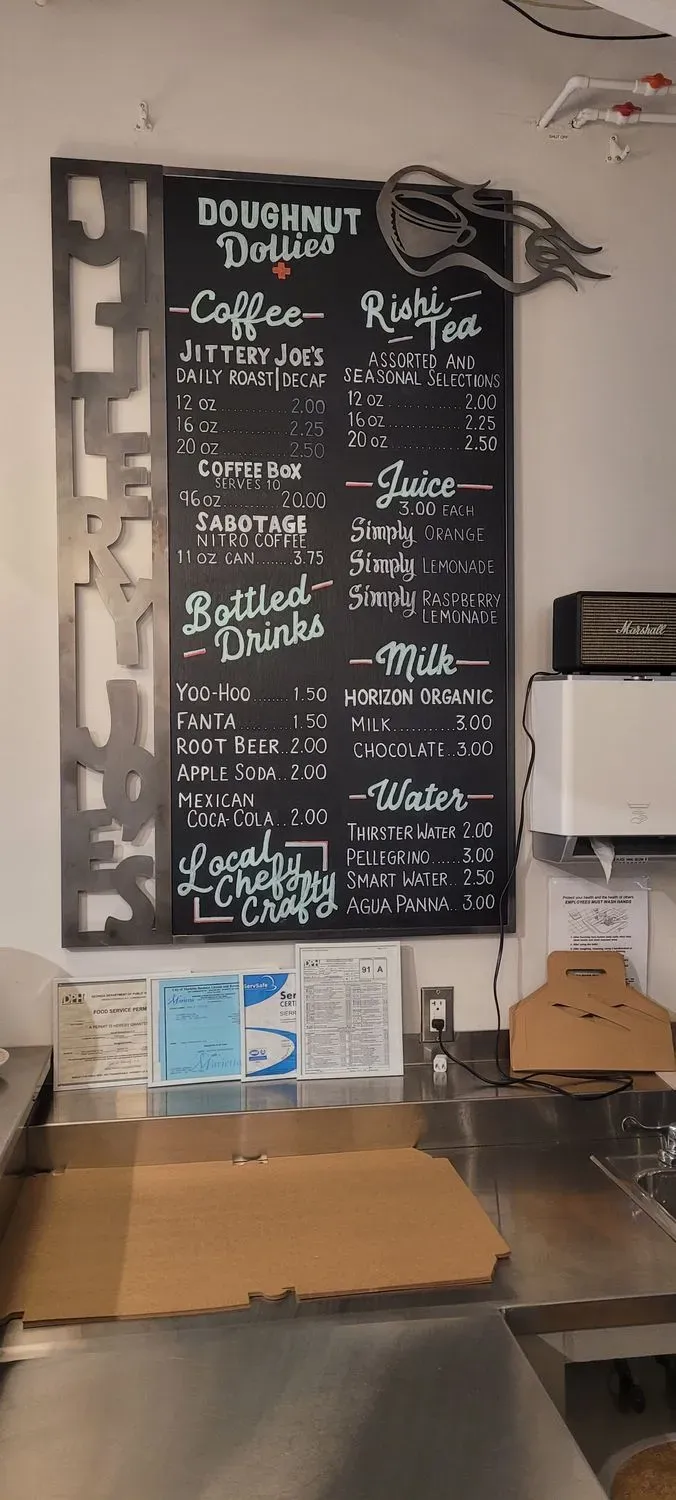 JITTERY JOE'S
DOUGHNUT
Dollies
Coffee
JITTERY JOE'S
DAILY ROAST|DECAF
12 OZ..........2.00
16 OZ..........2.25
20 OZ..........2.50
COFFEE BOX
SERVES 10
96 OZ........20.00
SABOTAGE
NITRO COFFEE
11 OZ CAN.......3.75
Bottled
Drinks
YOO-HOO.......1.50
FANTA..........1.50
ROOT BEER..2.00
APPLE SODA..2.00
MEXICAN
COCA-COLA..2.00
Local
Chefy
Crafty
Rishi
Tea
ASSORTED AND
SEASONAL SELECTIONS
12 OZ..........2.00
16 OZ..........2.25
20 OZ..........2.50
Juice
3.00 EACH
Simply ORANGE
Simply LEMONADE
Simply RASPBERRY
LEMONADE
Milk
HORIZON ORGANIC
MILK..........3.00
CHOCOLATE..3.00
Water
THIRSTER WATER 2.00
PELLEGRINO......3.00
SMART WATER..2.50
AGUA PANNA..3.00
SHUT OFF
Marshall
EMPLOYEES MUST WASH HANDS
DPH
FOOD SERVICE PERM
A PERMIT IS HEREBY GRANTED
Marietta
Marietta
ServSafe
Ser
CERT
SIERR
DPH
91 A